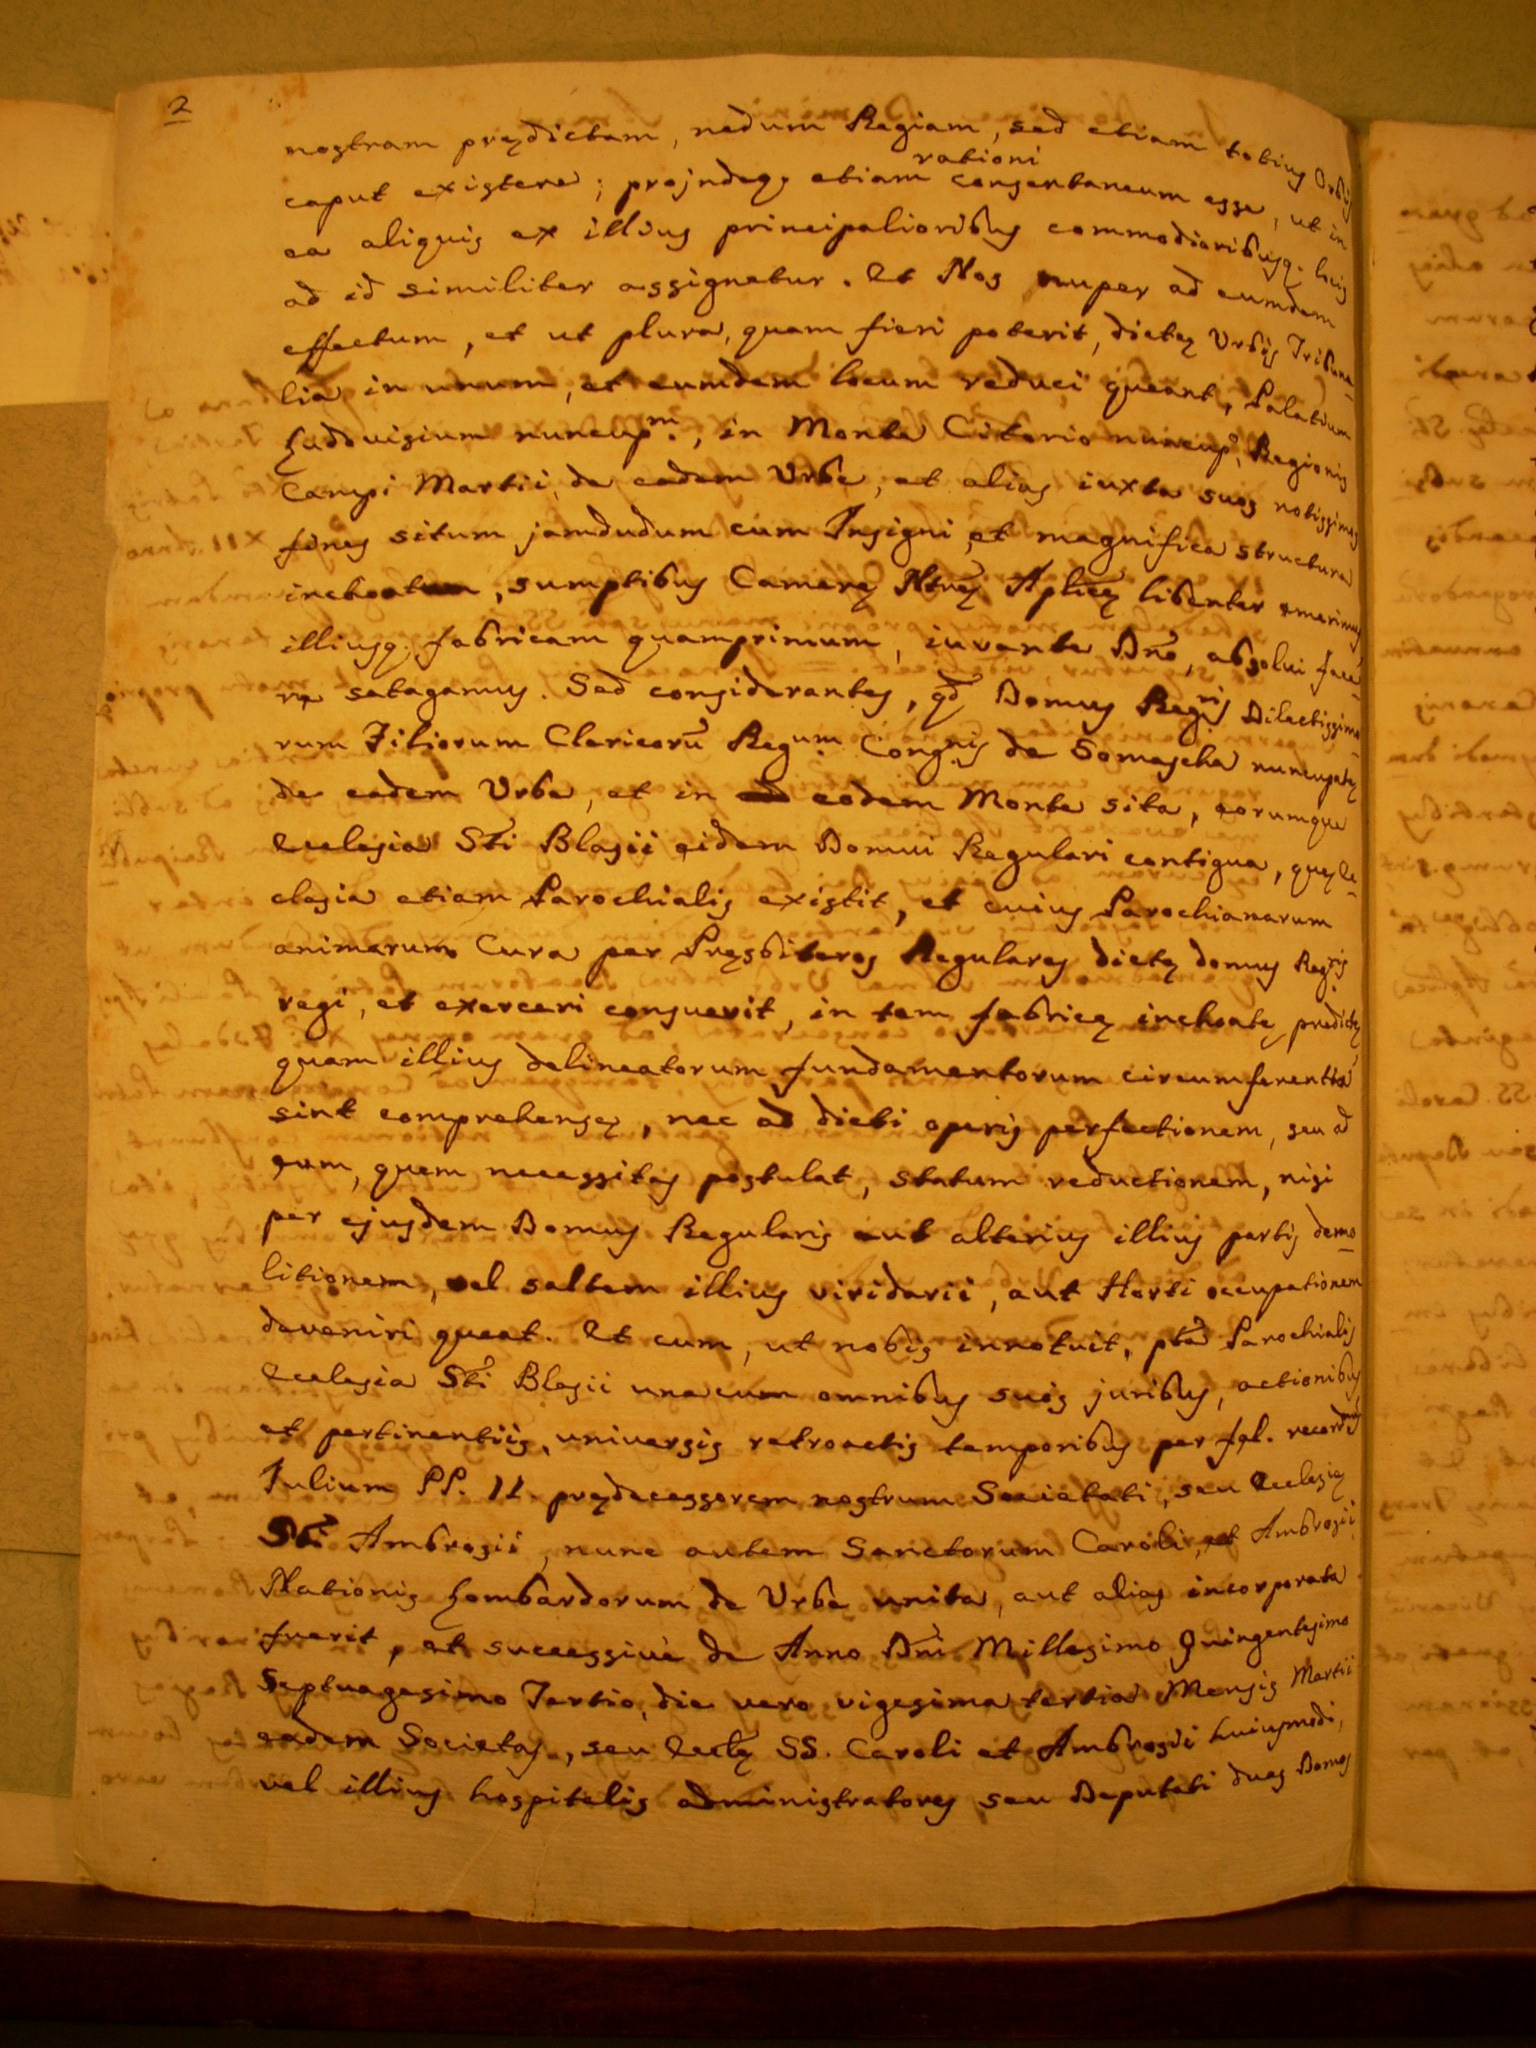 2
nostram prędictam, nedum Regiam, sed etiam totius Orbis
caput existere; proindeq; etiam rationi consentaneum esse, ut in
ea aliquis ex illius principalioribus commodioribusq. locis
ad id similiter assignetur. Et Nos nuper ad eumdem
effectum, et ut plura, quam fieri poterit, dictę Urbis Tribuna-
lia in unum, et eumdem locum reduci queant, Palatium
Ludovisium nuncup.m, in Monte Citorio nuncup.o, Regionis
Campi Martii, de eadem Urbe, et alias iuxta suos notissimos
fines situm jamdudum cum Insigni, et magnifica structura
inchoatum, sumptibus Camerę Ntrę Aplicę libenter emerimus
illiusq. fabricam quamprimum, iuvante Dno, absolui face-
re satagamus. Sed considerantes, qd Domus Reg.ris Dilectissimo-
rum Filiorum Clericorū Reg.um Cong.nis de Somascha nuncupatę
de eadem Urbe, et in eodem Monte sita, eorumque
Ecclesia Sti Blasii eidem Domui Regulari contigua, quę Ec-
clesia etiam Parochialis existit, et cuius Parochianarum
animarum Cura per Pręsbiteros Regulares dictę domus Reg.ris
regi, et exerceri consuevit, in tam fabricę inchoatę predictę
quam illius delineatorum fundamentorum circumferentia
sint comprehensę, nec ad dicti operis perfectionem, seu ad
eum, quem necessitas postulat, statum reductionem, nisi
per ejusdem Domus Regularis aut alterius illius partis demo-
litionem, vel saltem illius viridarii, aut Horti occupationem
deveniri queat. Et cum, ut nobis innotuit, pta Parochialis
Ecclesia Sti Blasii una cum omnibus suis juribus, actionibus
et pertinentiis, universis retroactis temporibus per fel. recordnis
Iulium PP. II. prędecessorem nostrum Societati, seu Ecclesię
Sti Ambrosii, nunc autem Sanctorum Caroli, et Ambrosii
Nationis Lombardorum de Urbe unita, aut alias incorporata
fuerit, et successive de Anno Dni Millesimo Quingentesimo
Septuagesimo Tertio, die vero vigesima tertia Mensis Martii
eadem Societas, seu Ecclę SS. Caroli et Ambrosii huiusmodi,
vel illius hospitalis administratores seu Deputati duas Domos